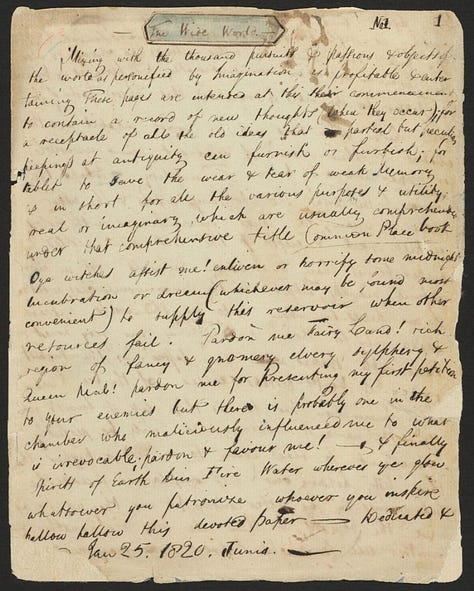 The Wide World
No 1. 1
Mixing with the thousand pursuits & passions & objects of
the world as personified by Imagination is profitable & enter
taining. These pages are intended at this their commencement
to contain a record of new thoughts (when they occur); for
a receptacle of all the old ideas that partial but peculiar
peepings at antiquity can furnish or furbish; for
tablet to save the wear & tear of weak Memory
& in short for all the various purposes & utility
real or imaginary which are usually comprehended
under that comprehensive title Common Place book
O ye witches assist me! enliven or horrify some midnight
lucubration or dream (whichever may be found most
convenient) to supply this reservoir when other
resources fail. Pardon me Fairy Land! rich
region of fancy & gnomery elvery sylphery &
Queen Mab! pardon me for presenting my first petition
to your enemies but there is probably one in the
chamber who maliciously influenced me to what
is irrevocable; pardon & favour me! — & finally
Spirits of Earth Air Fire Water wherever ye glow
whatsoever you patronize whoever you inspire
hallow hallow this devoted paper — Dedicated &
Jan 25. 1820. Junio. —